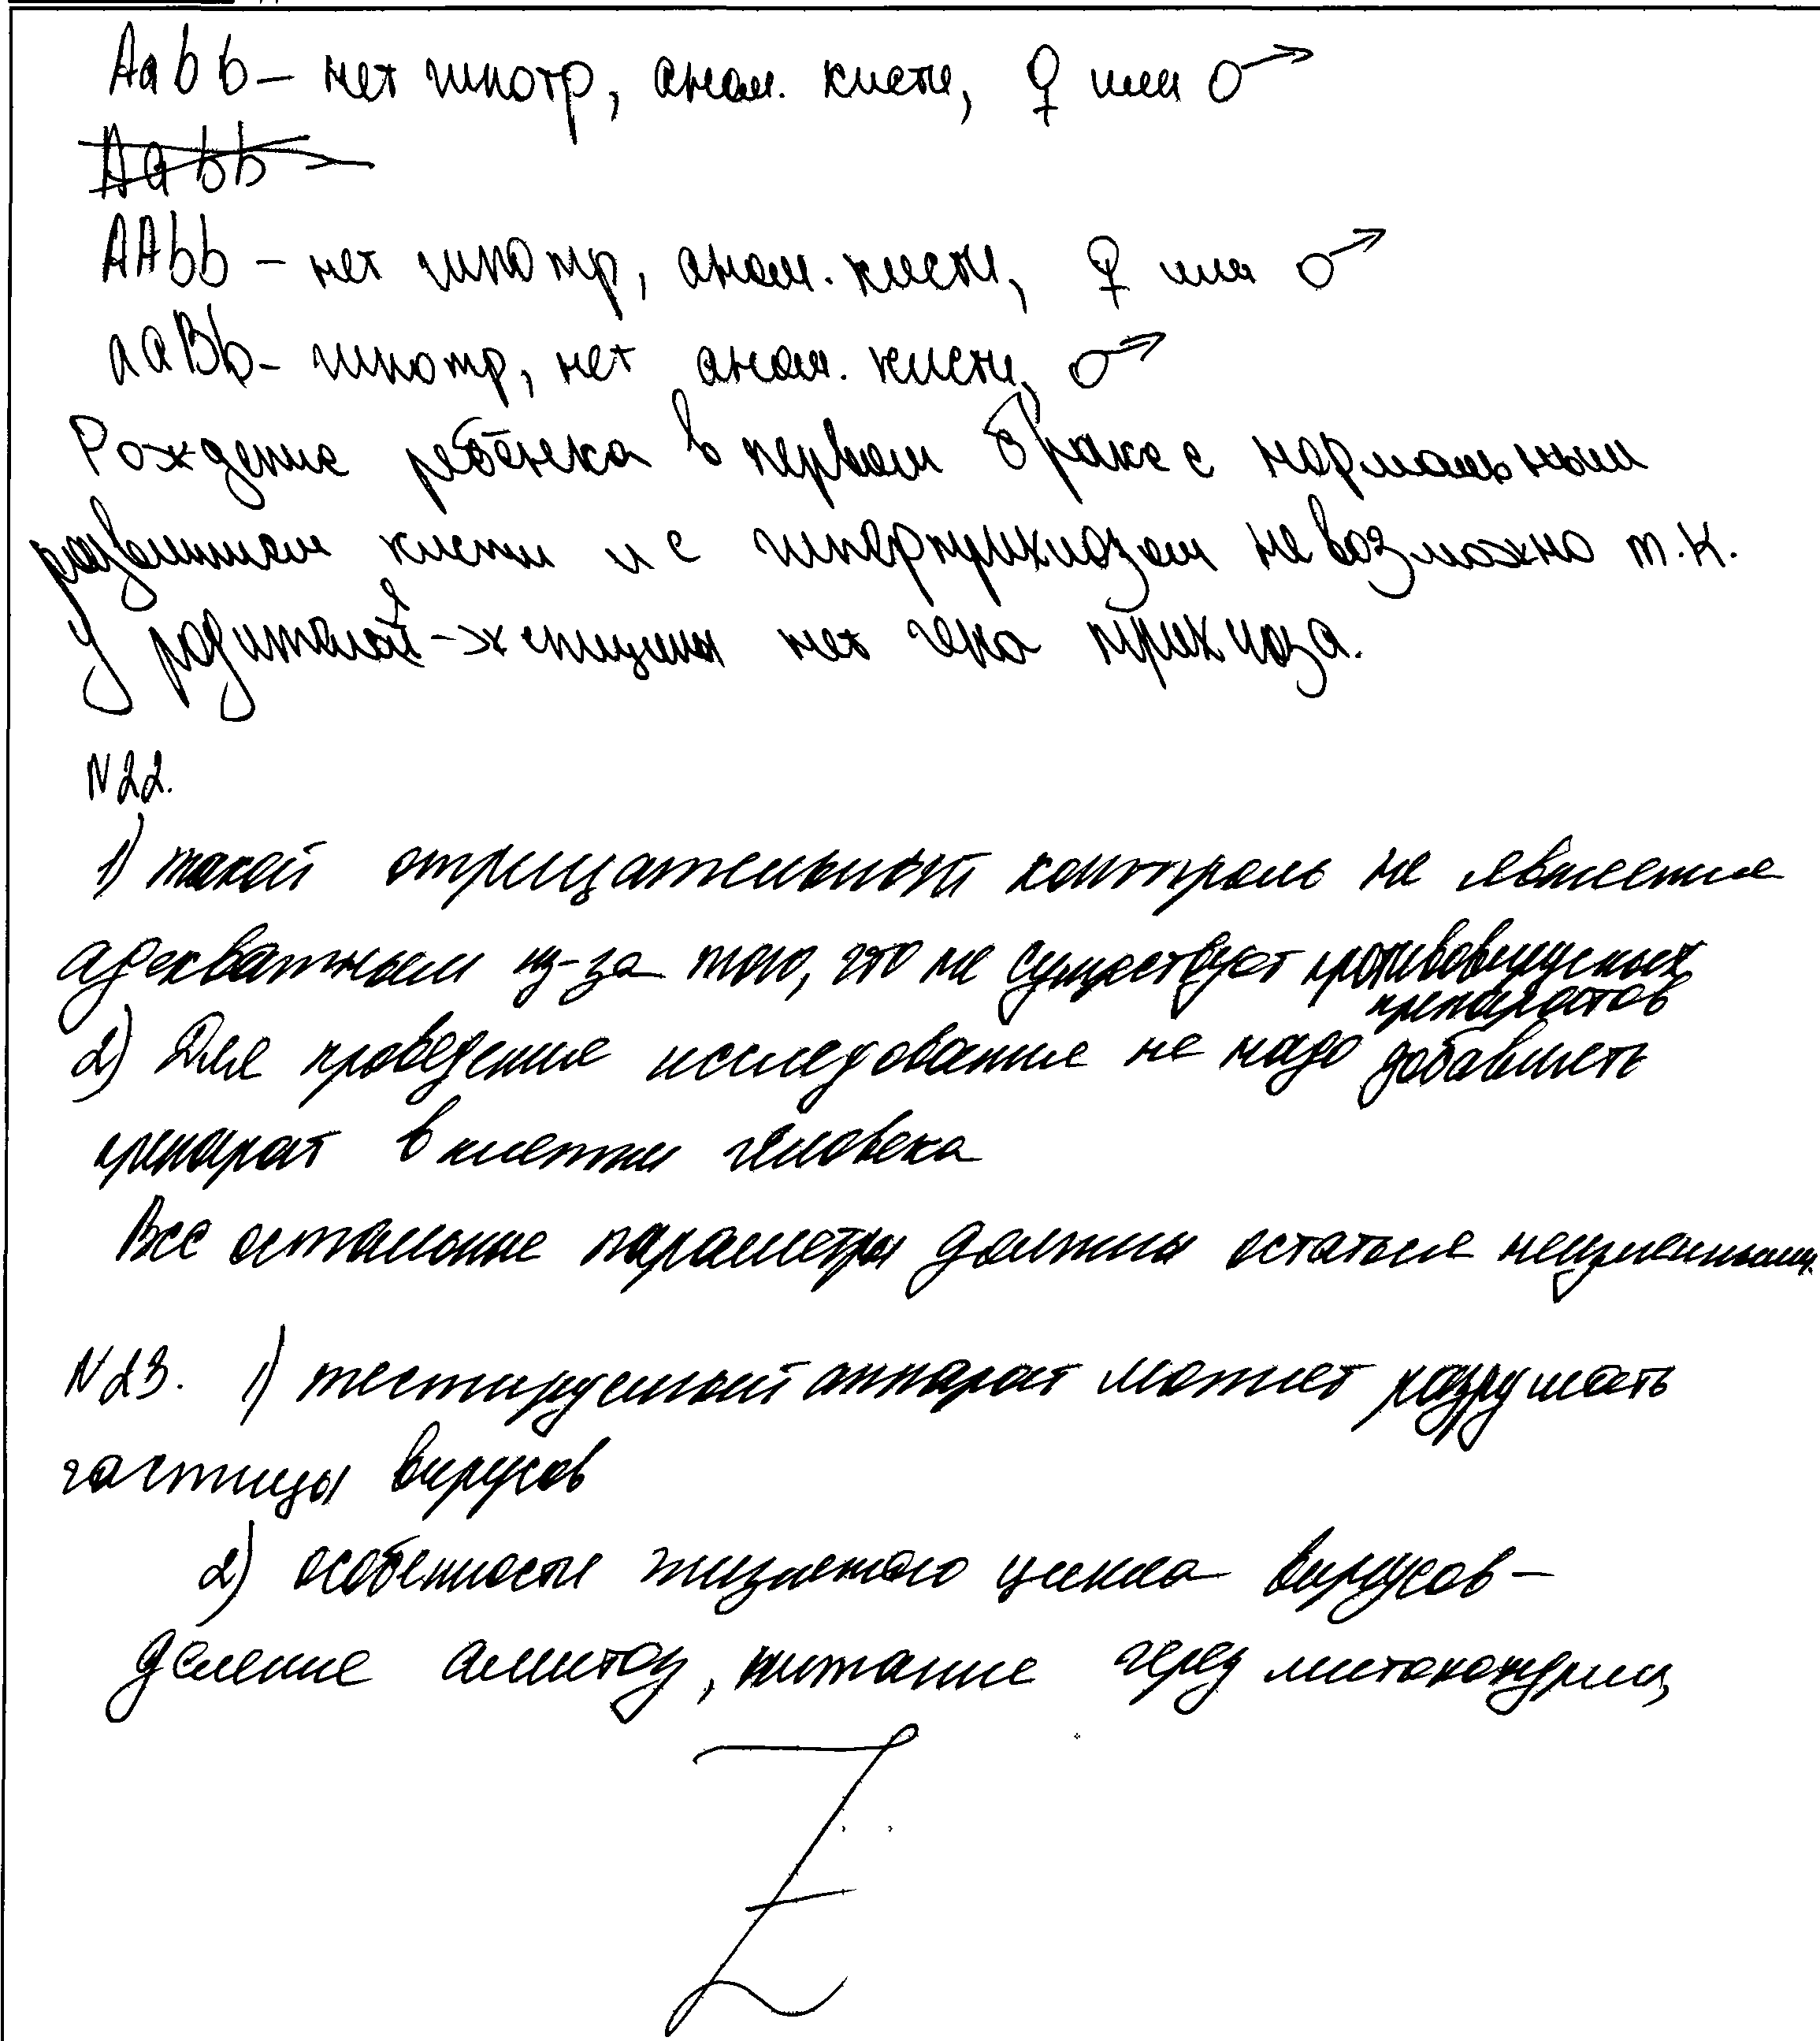 Aabb – нет гипотр, аном. кисти, ♀ или ♂
Aabb –
AAbb – нет гипотр, аном. кисти, ♀ или ♂
aaBb – гипотр, нет аном. кисти, ♂
Рождение ребёнка в первом браке с нормальным
развитием кисти и с гипертрихиозом невозможно т.к.
у родителей-женщины нет гена трихиоза.
N22.
1) такой отрицательный контроль не является
адекватным из-за того, что не существует противовирусных
препаратов
2) Для проведения исследования не надо добавлять
препарат в клетки человека
Все остальные параметры должны остаться неизменными.
N23. 1) тестируемый аппарат может разрушать
частицы вирусов
2) особенности жизненого цикла вирусов –
деление амитоз, питание через митохондрии,